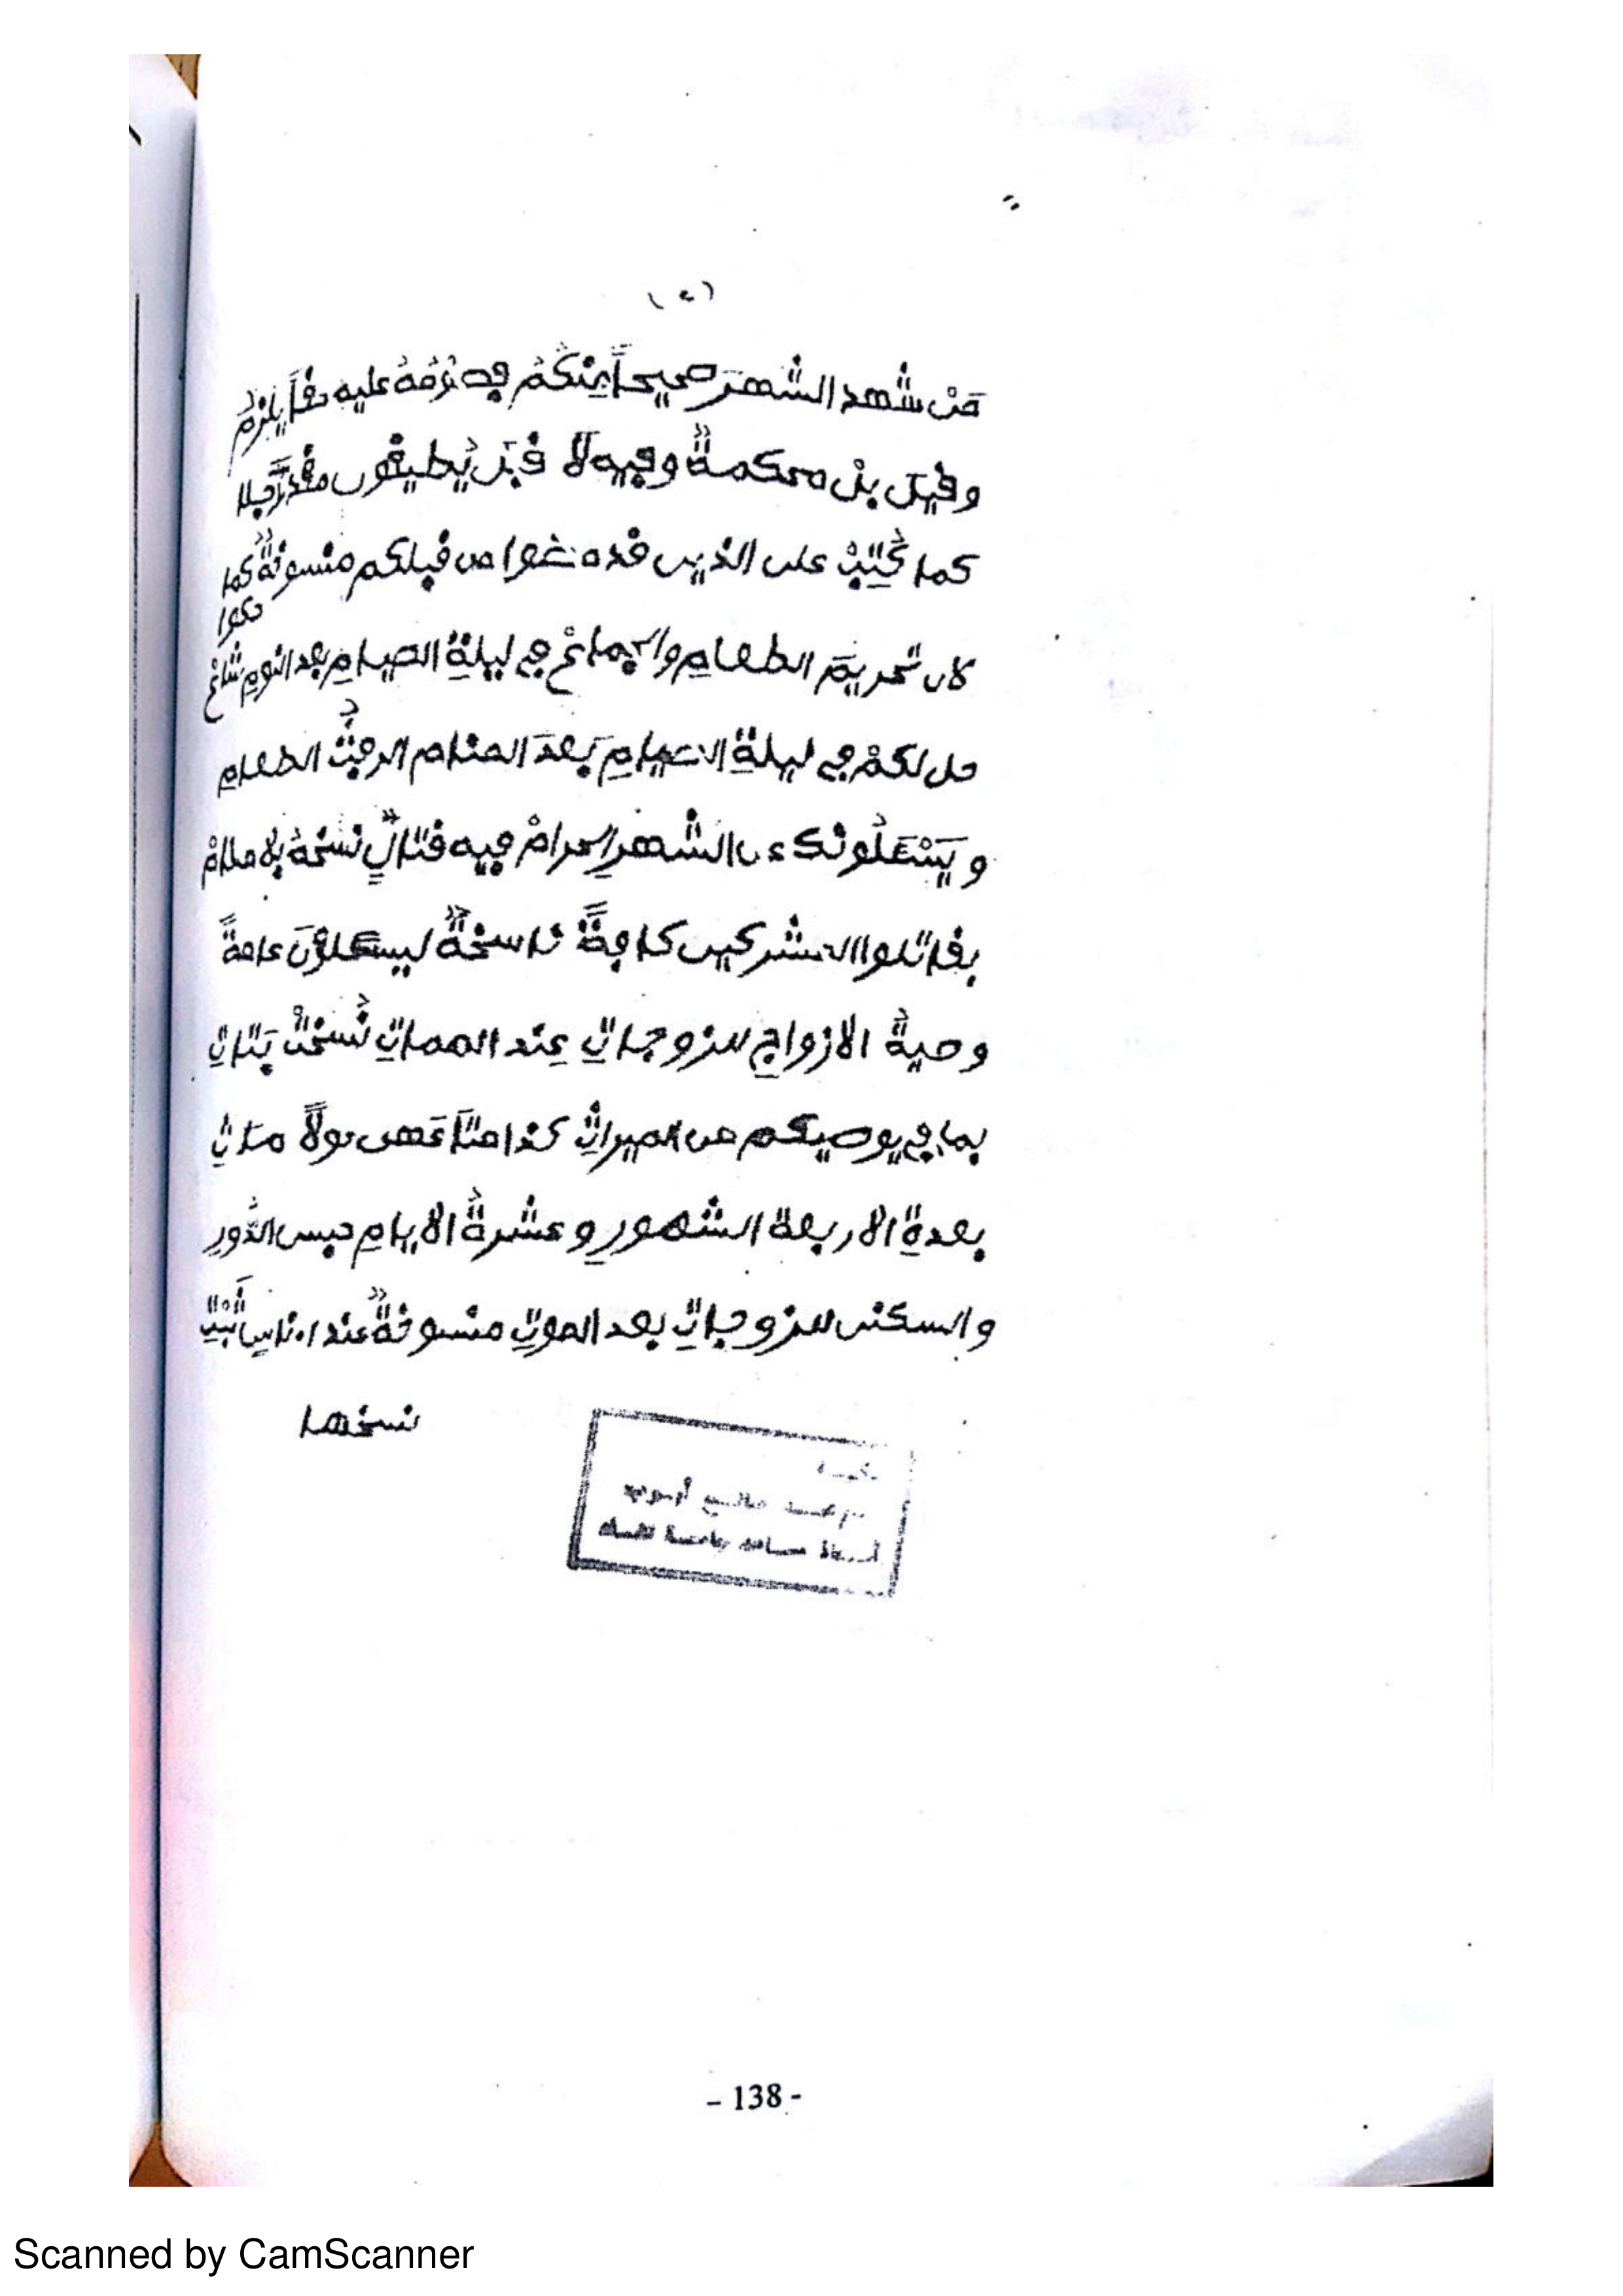 (٤)
مَنْ شهد الشهرَ صحيحاً مِنكُمُ فصومُهُ عليه حقاً يلزمُ
وقيل بل محكمةٌ وفيه لا قبل يُطيقون مقدَّرٌ جلا
كما كُتِبْ على الذين قد مضوا من قبلكم منسوخةٌ كما حكوا
لان تحريمَ الطعامِ والجماعْ في ليلةِ الصيامِ بعد النومِ شاعْ
حل لكمْ في ليلةِ الصيامِ بَعدَ المنام الرفثُ الطعامِ
ويَسْئَلُونك عن الشهرِ الحرامْ فيه قتالٍ نسخهُ بلا ملامْ
بقاتلوا المشركين كافةً ناسخةٌ ليسئلونَ عامةً
وصيةُ الازواجِ للزوجاتِ عِند المماتِ نُسختْ بَتاتِ
بما في يوصيكم من الميراثِ كذا متاعهن حولاً
بعدةِ الاربعة الشهورِ وعشرةُ الايامِ حبس الدُّورِ
والسكنى للزوجاتِ بعد الموتِ منسوخةٌ عند اناسٍ
نسخها
أستاذ مساعد بجامعة
- 138 -
Scanned by CamScanner